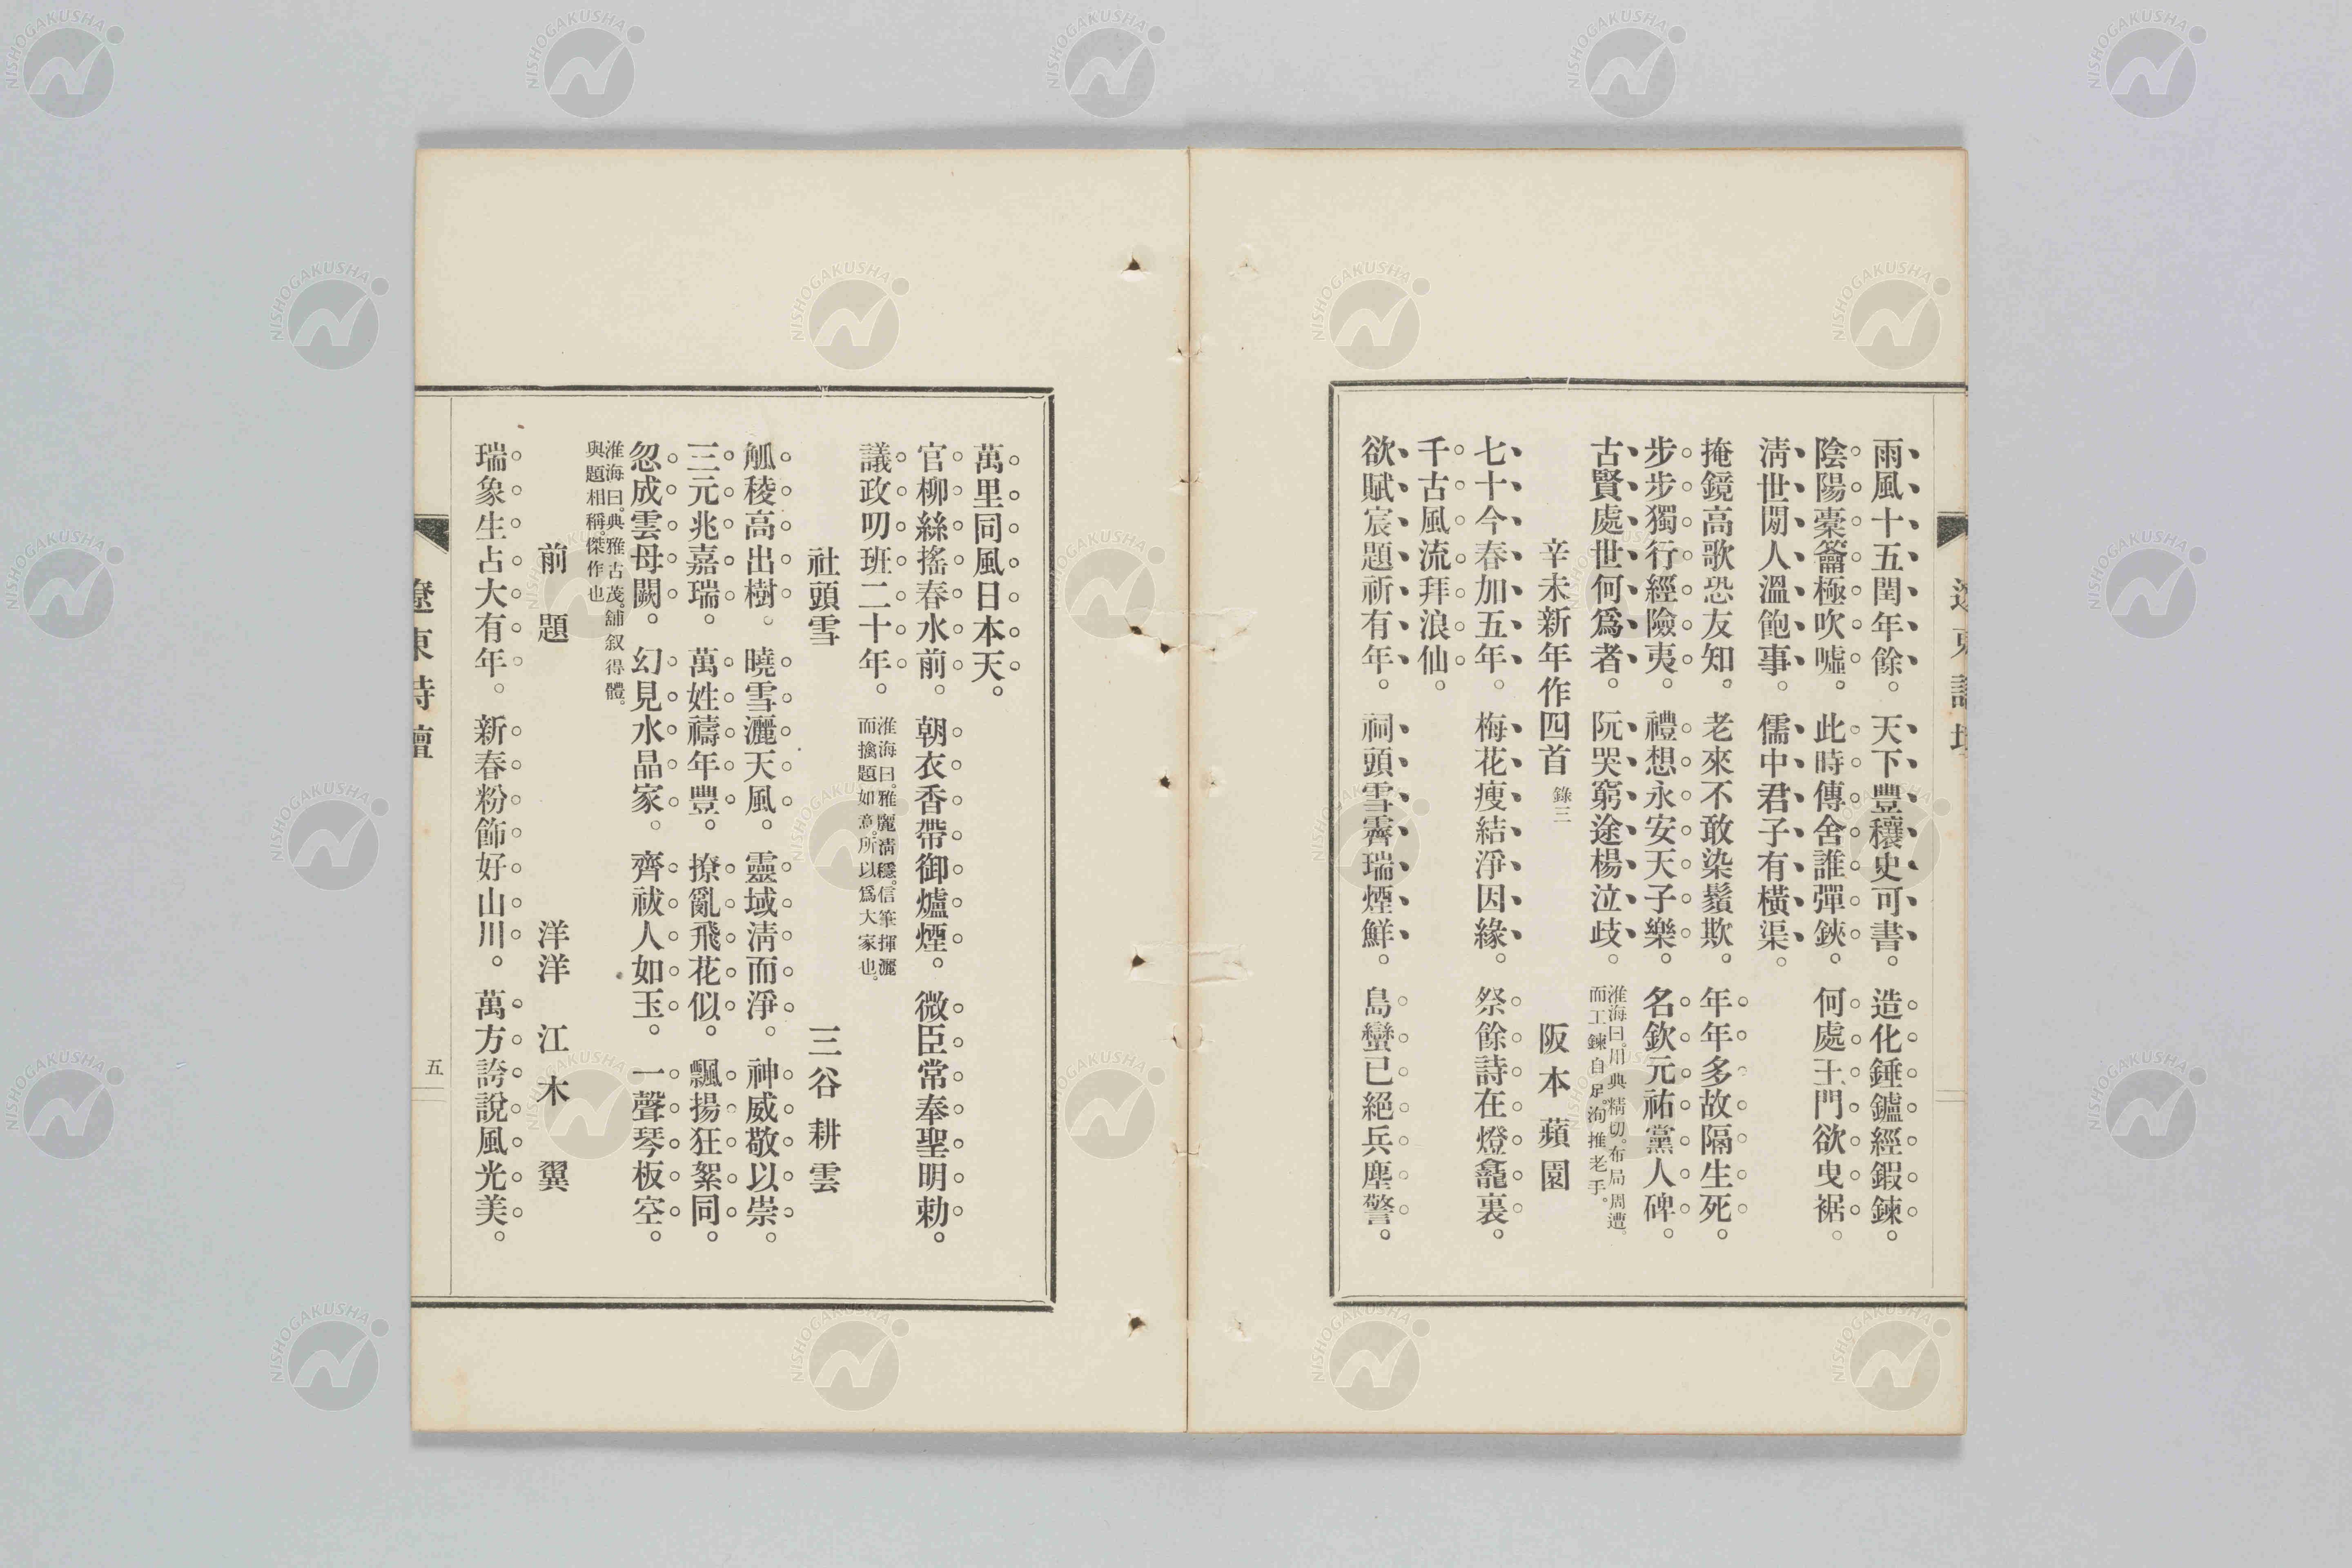 雨風十五閏年餘。天下豐穰史可書。造化錘鑪經鍜鍊。
陰陽槖籥極吹噓。此時傳舍誰彈鋏。何處王門欲曳裾。
淸世閒人溫飽事。儒中君子有橫渠。
掩鏡高歌恐友知。老來不敢染鬚欺。年年多故隔生死。
步步獨行經險夷。禮想永安天子樂。名欽元祐黨人碑。
古賢處世何爲者。阮哭窮途楊泣歧。
淮海曰。用典精切。布局周遭。
而工鍊自足。洵推老手。
辛未新年作四首 錄三 阪本蘋園
七十今春加五年。梅花瘦結淨因緣。祭餘詩在燈龕裏。
千古風流拜浪仙。
欲賦宸題祈有年。祠頭雪霽瑞煙鮮。島蠻已絕兵塵警。
遼東詩壇
萬里同風日本天。
官柳絲搖春水前。朝衣香帶御爐煙。微臣常奉聖明勅。
議政叨班二十年。
淮海曰。雅麗淸穩。信筆揮灑
而擒題如意。所以爲大家也。
社頭雪 三谷耕雲
觚稜高出樹。曉雪灑天風。靈域淸而淨。神威敬以崇。
三元兆嘉瑞。萬姓禱年豐。撩亂飛花似。飄揚狂絮同。
忽成雲母闕。幻見水晶家。齊祓人如玉。一聲琴板空。
淮海曰。典雅古茂。舖叙得體。
與題相稱。傑作也
前題 洋洋 江木 翼
瑞象生占大有年。新春粉飾好山川。萬方誇說風光美。
遼東詩壇
五
NISHOGAKUSHA